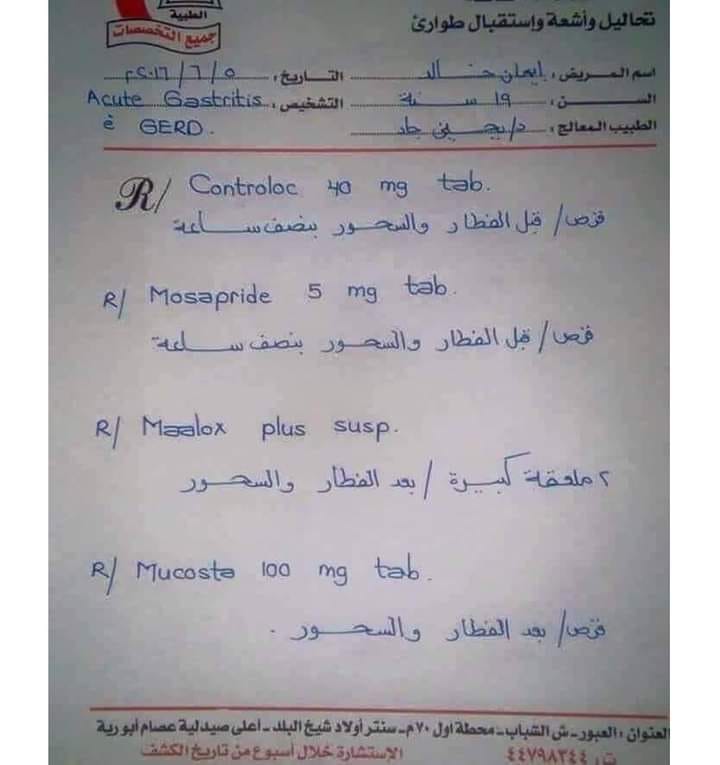 الطبية
جميع التخصصات
تحاليل وأشعة وإستقبال طوارئ
اسم المريض : إيمان خالد التاريخ : ٥ / ٦ / ٢٠١٦م
الســن : ١٩ سنة التشخيص : Acute Gastritis
الطبيب المعالج : د/ يحيى جاد è GERD.
R/ Controloc 40 mg tab.
قرص/ قبل الفطار والسحور بنصف ساعة
R/ Mosapride 5 mg tab.
قرص/ قبل الفطار والسحور بنصف ساعة
R/ Maalox plus susp.
٢ ملعقة كبيرة / بعد الفطار والسحور
R/ Mucosta 100 mg tab.
قرص/ بعد الفطار والسحور .
العنوان : العبور - ش الشباب - محطة اول ٧٠م - سنتر أولاد شيخ البلد - أعلى صيدلية عصام أبورية
ت : ٤٤٧٩٨٣٤٤ الإستشارة خلال أسبوع من تاريخ الكشف